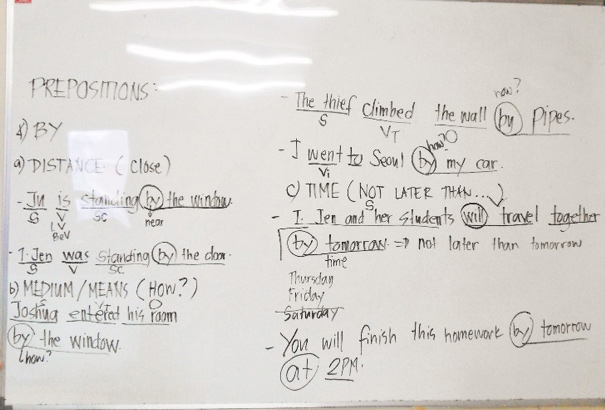 PREPOSITIONS:
4) BY
a) DISTANCE (close)
- Ju is standing by the window.
S V SC near
LV
BeV
- T. Jen was standing by the door.
S V SC
b) MEDIUM/MEANS (HOW?)
Joshua entered his room
S VT O
by the window.
how?
how?
- The thief climbed the wall by pipes.
S VT O
how?
- I went to Seoul by my car.
Vi
c) TIME (NOT LATER THAN...)
S
- T. Jen and her students will travel together
by tomorrow. => not later than tomorrow
time
Thursday
Friday
Saturday
- You will finish this homework by tomorrow
at 2PM.